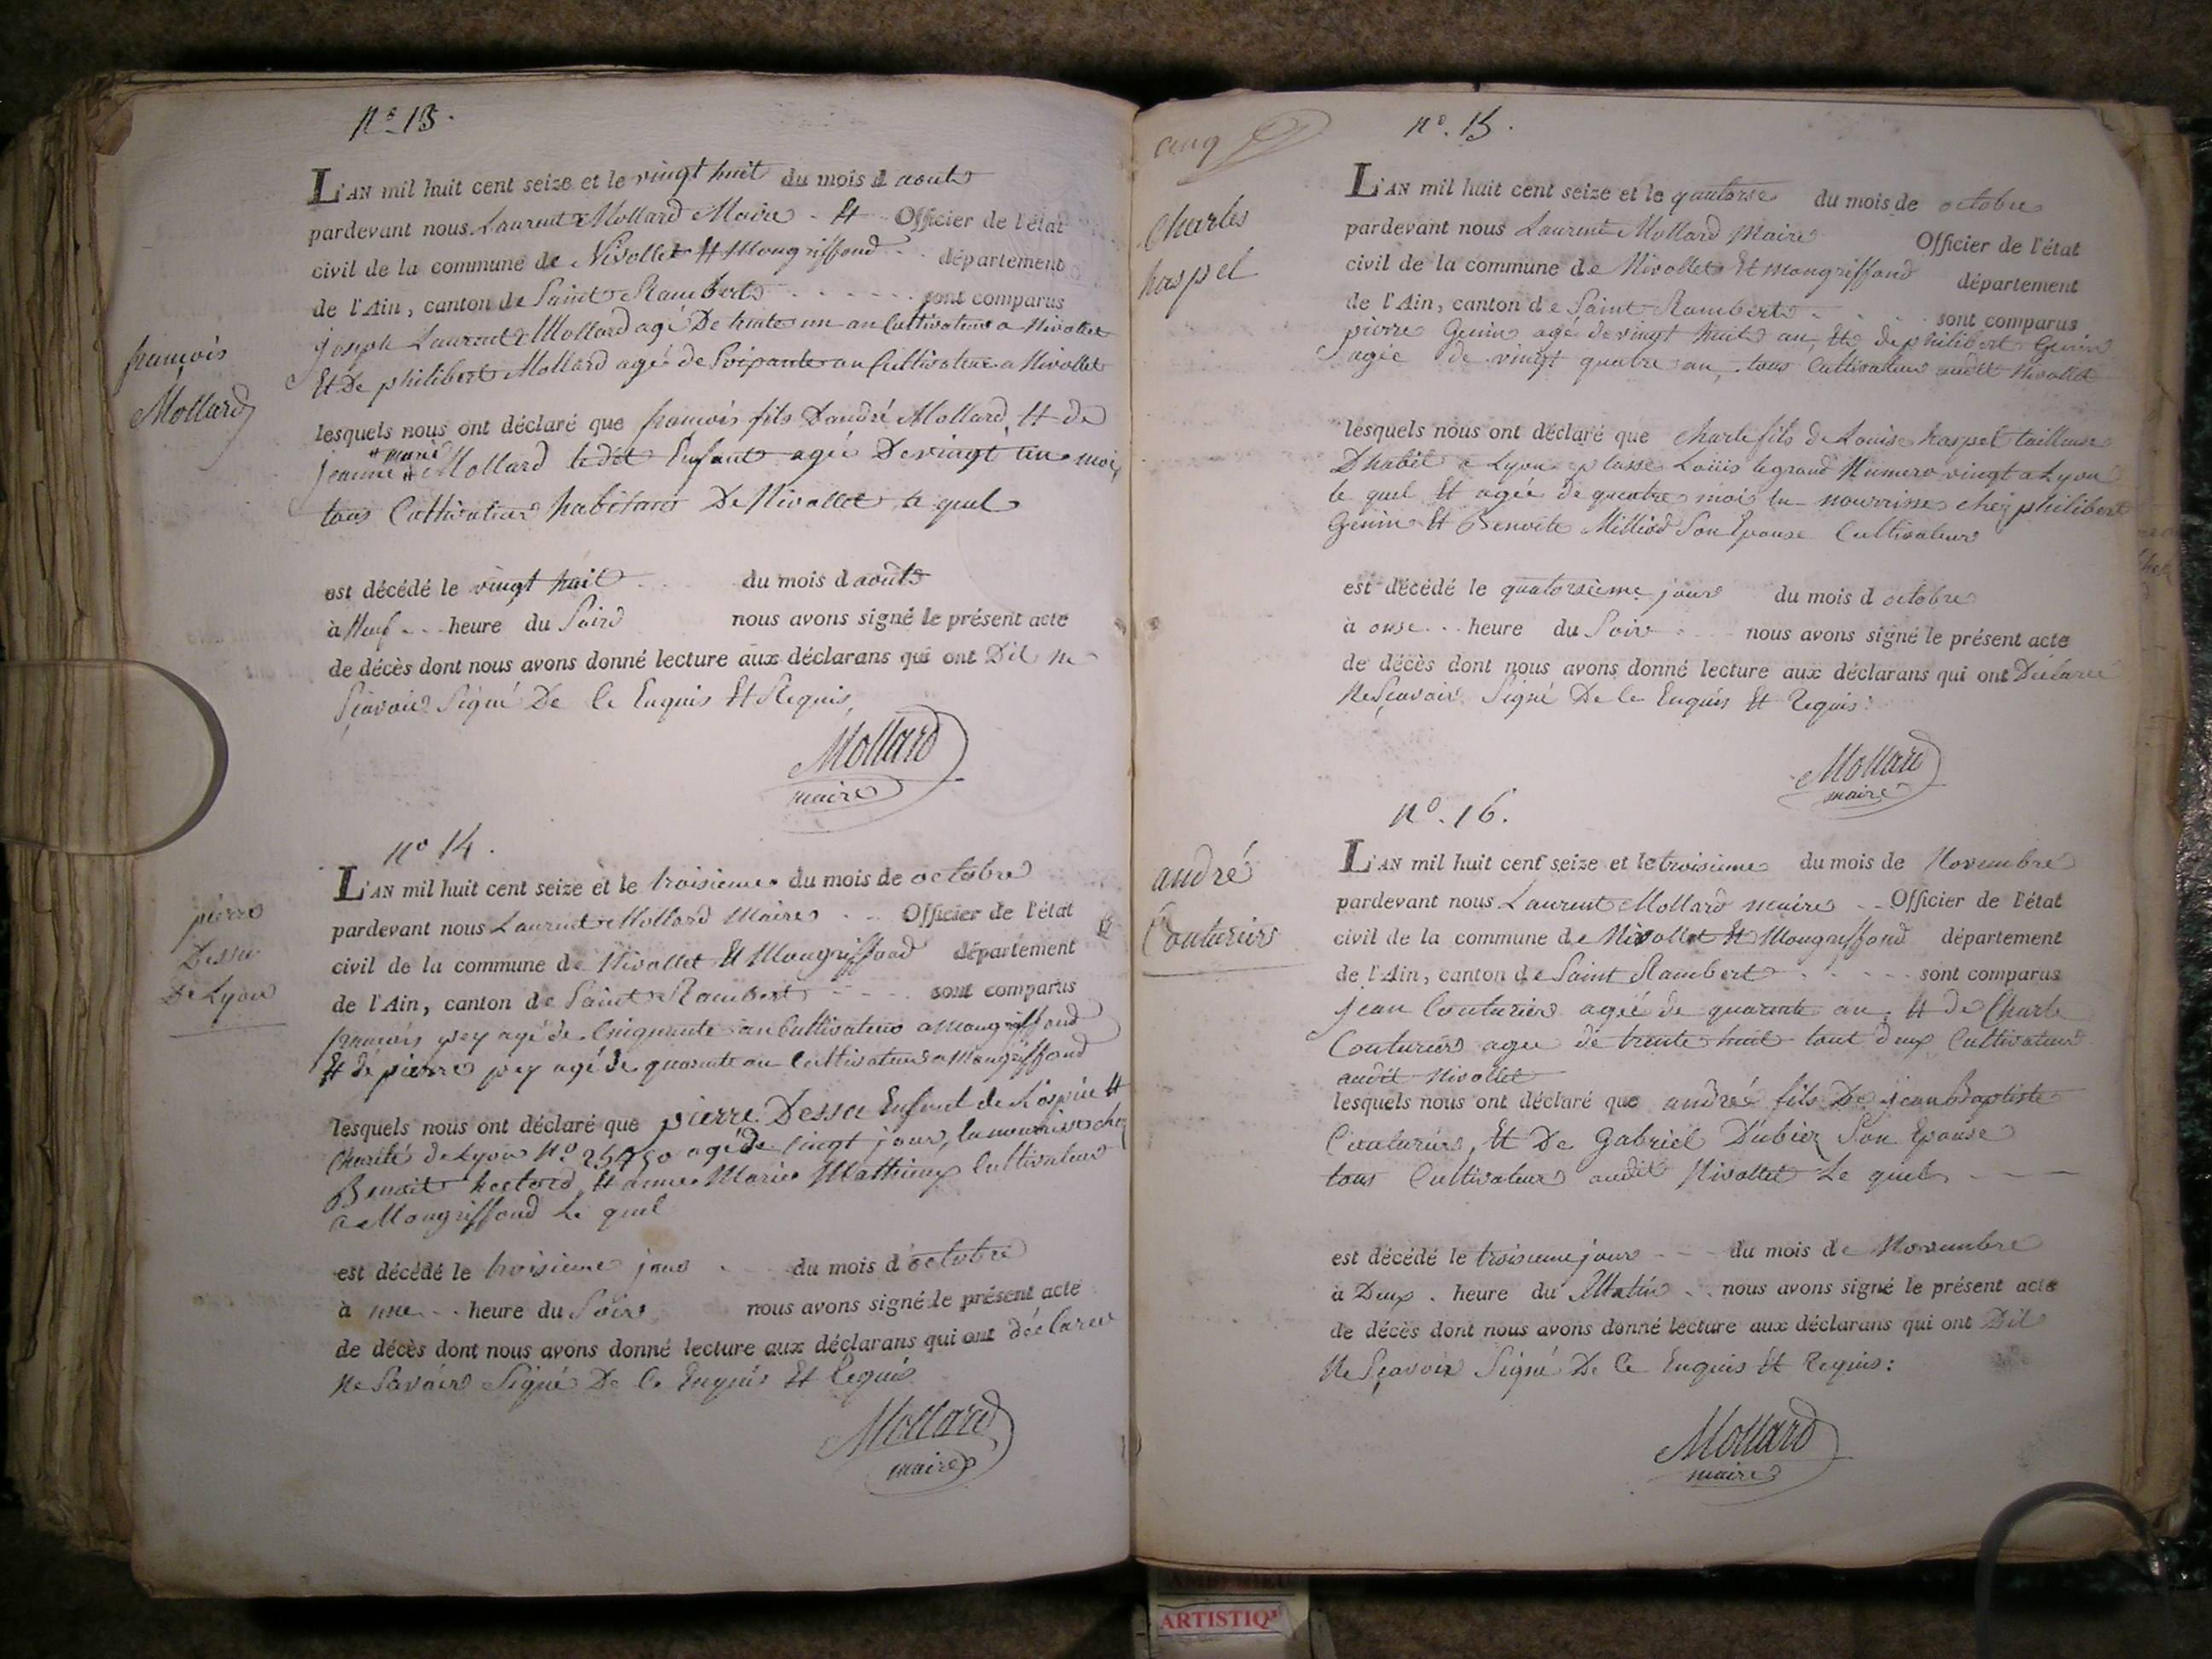 n° 13.
L'AN mil huit cent seize et le vingt huit du mois d aout
pardevant nous Laurent Mollard Maire Et Officier de l'état
civil de la commune de Nivollet Et Mongriffond département
de l'Ain, canton de Saint Rambert sont comparus
joseph Laurent Mollard agé De trente un an Cultivateur a Nivollet
Et De philibert Mollard agé de Soixante an Cultivateur a Nivollet
françois
Mollard
lesquels nous ont déclaré que françois fils D'andré Mollard Et de
# marie
jeanne # Mollard ledit Enfant agé De vingt un mois
tous Cultivateur habitans De Nivollet le quel
est décédé le vingt huit du mois d aout
à Neuf heure du Soir nous avons signé le présent acte
de décès dont nous avons donné lecture aux déclarans qui ont Dit ne
Sçavoir Signé De Ce Enquis Et Requis,
Mollard
maire
n° 14.
L'AN mil huit cent seize et le troisieme du mois de octobre
pardevant nous Laurent Mollard Maire Officier de l'état
civil de la commune de Nivollet Et Mongriffond département
de l'Ain, canton de Saint Rambert sont comparus
françois pey agé de Cinquante an Cultivateur a mongriffond
Et de pierre pey agé de quarante an Cultivateur a Mongriffond
pierre
Dessu
De Lyon
lesquels nous ont déclaré que pierre Dessu Enfant de L'ospice Et
Charité de Lyon N° agé de vingt jour, la nourrisse chez
Benoit hectord Et anne Marie Mathieux Cultivateur
a Mongriffond Le quel
est décédé le troisieme jour du mois d octobre
à une heure du Soir nous avons signé le présent acte
de décès dont nous avons donné lecture aux déclarans qui ont déclaré
Ne Savoir Signé De Ce Enquis Et Requis
Mollard
maire
cinq
n°. 15.
L'AN mil huit cent seize et le quatorse du mois de octobre
pardevant nous Laurent Mollard Maire Officier de l'état
civil de la commune de Nivollet Et Mongriffond département
de l'Ain, canton de Saint Rambert sont comparus
pierre Genin agé de vingt huit an, Et de philibert Genin
agée de vingt quatre an, tous Cultivateur audit Nivollet
Charles
haspel
lesquels nous ont déclaré que Charle fils de Louise haspel tailleuse
D'habit a Lyon plasse Loüis legrand Numero vingt a Lyon
le quel Et agée de quatre mois En nourrisse chez philibert
Genin Et Benoite Milliod Son Epouse Cultivateur
est décédé le quatorsieme jour du mois d octobre
à onse heure du Soir nous avons signé le présent acte
de décès dont nous avons donné lecture aux déclarans qui ont Déclaré
Ne Sçavoir Signé De Ce Enquis Et Requis:
Mollard
maire
n°. 16.
L'AN mil huit cent seize et le troisieme du mois de Novembre
pardevant nous Laurent Mollard maire Officier de l'état
civil de la commune de Nivollet Et Mongriffond département
de l'Ain, canton de Saint Rambert sont comparus
jean Couturier agée de quarente an, Et de Charle
Couturier agee de trente huit tout deux Cultivateur
audit Nivollet
andré
Couturier
lesquels nous ont déclaré que andreé fils De jean Baptiste
Couturier, Et De Gabriel Dubiez Son Epouse
tous Cultivateur audit Nivollet Le quel
est décédé le troisieme jour du mois de Novembre
à Deux heure du Matin nous avons signé le présent acte
de décès dont nous avons donné lecture aux déclarans qui ont Dit
Ne Sçavoir Signé De Ce Enquis Et Requis:
Mollard
maire
ARTISTIQ